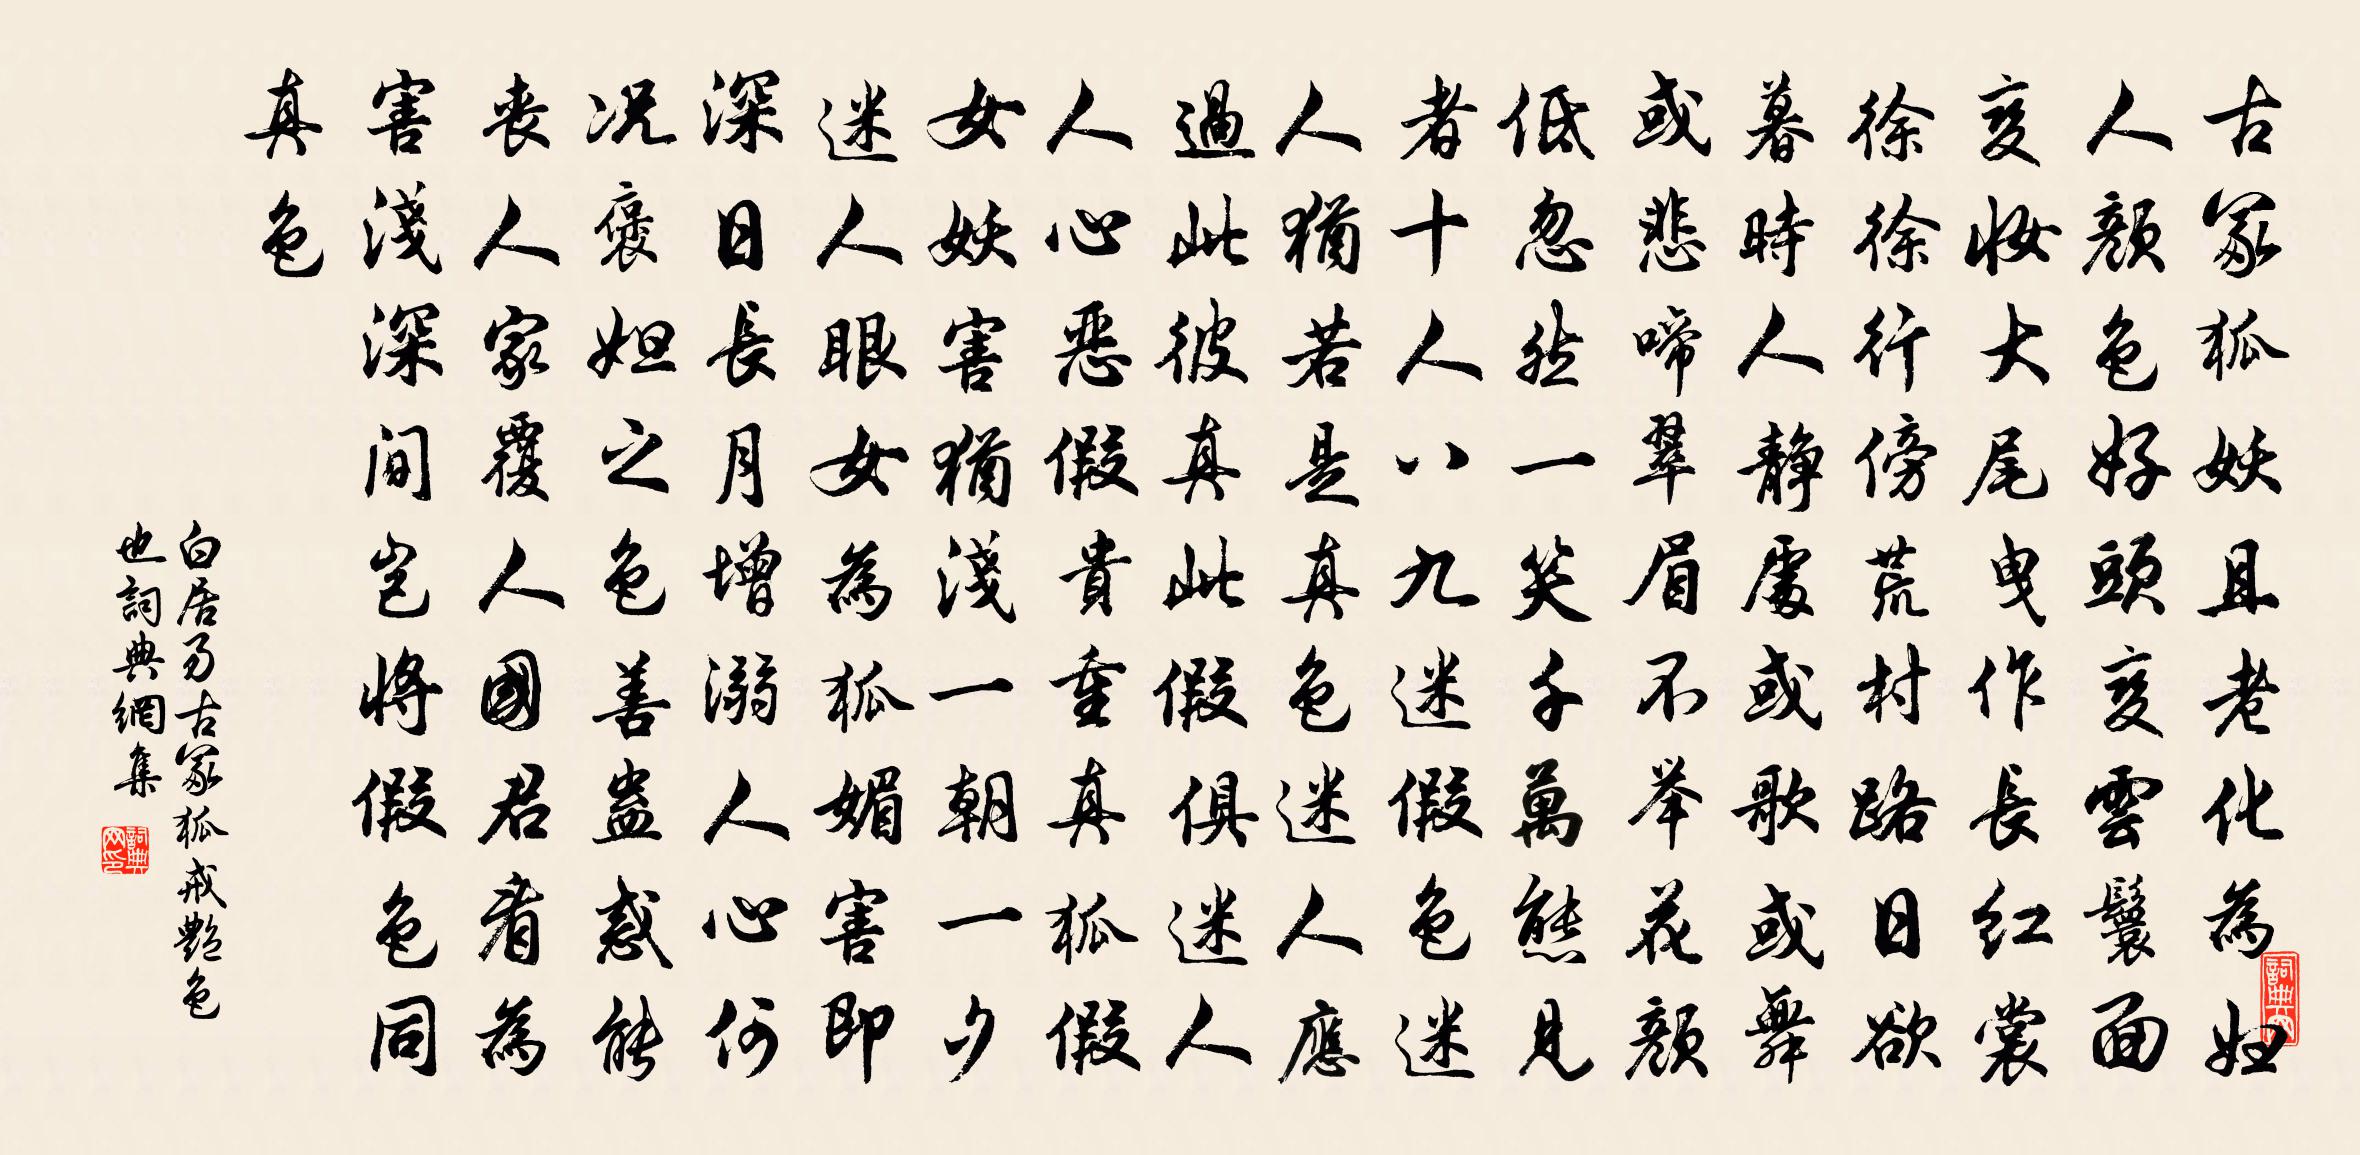 古冢狐妖且老化為妇
人颜色好頭变雲鬟面
变妝大尾曳作長红裳
徐徐行傍荒村路日欲
暮時人静處或歌或舞
或悲啼翠眉不举花颜
低忽然一笑千萬態見
者十人八九迷假色迷
人猶若是真色迷人應
過此彼真此假俱迷人
人心恶假貴重真狐假
女妖害猶淺一朝一夕
迷人眼女為狐媚害即
深日長月增溺人心何
况褒妲之色善蠱惑能
丧人家覆人國君看為
害淺深间岂将假色同
真色
白居易古冢狐戒艷色
也詞典網集
詞典网
詞典网印